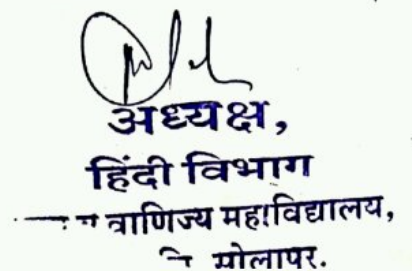 अध्यक्ष,
हिंदी विभाग
वाणिज्य महाविद्यालय,
सोलापूर.